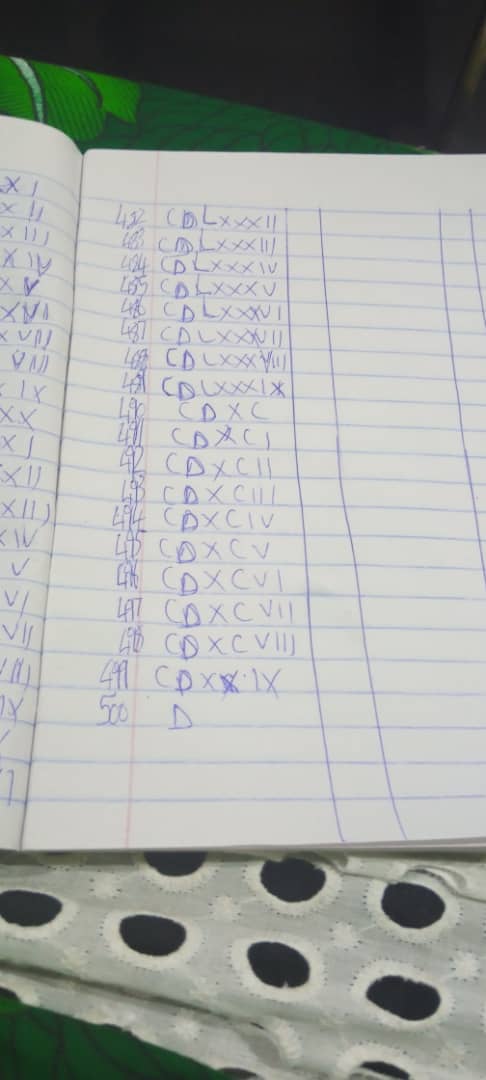 XI
XII
XIII
XIV
XV
XVI
XVII
VIII
IX
XX
XI
XII
XIII
XIV
V
VI
VII
VIII
IX
482 CDLXXXII
483 CDLXXXIII
484 CDLXXXIV
485 CDLXXXV
486 CDLXXXVI
487 CDLXXXVII
488 CDLXXXVIII
489 CDLXXXIX
490 CDXC
491 CDXCI
492 CDXCII
493 CDXCIII
494 CDXCIV
495 CDXCV
496 CDXCVI
497 CDXCVII
498 CDXCVIII
499 CDXX IX
500 D